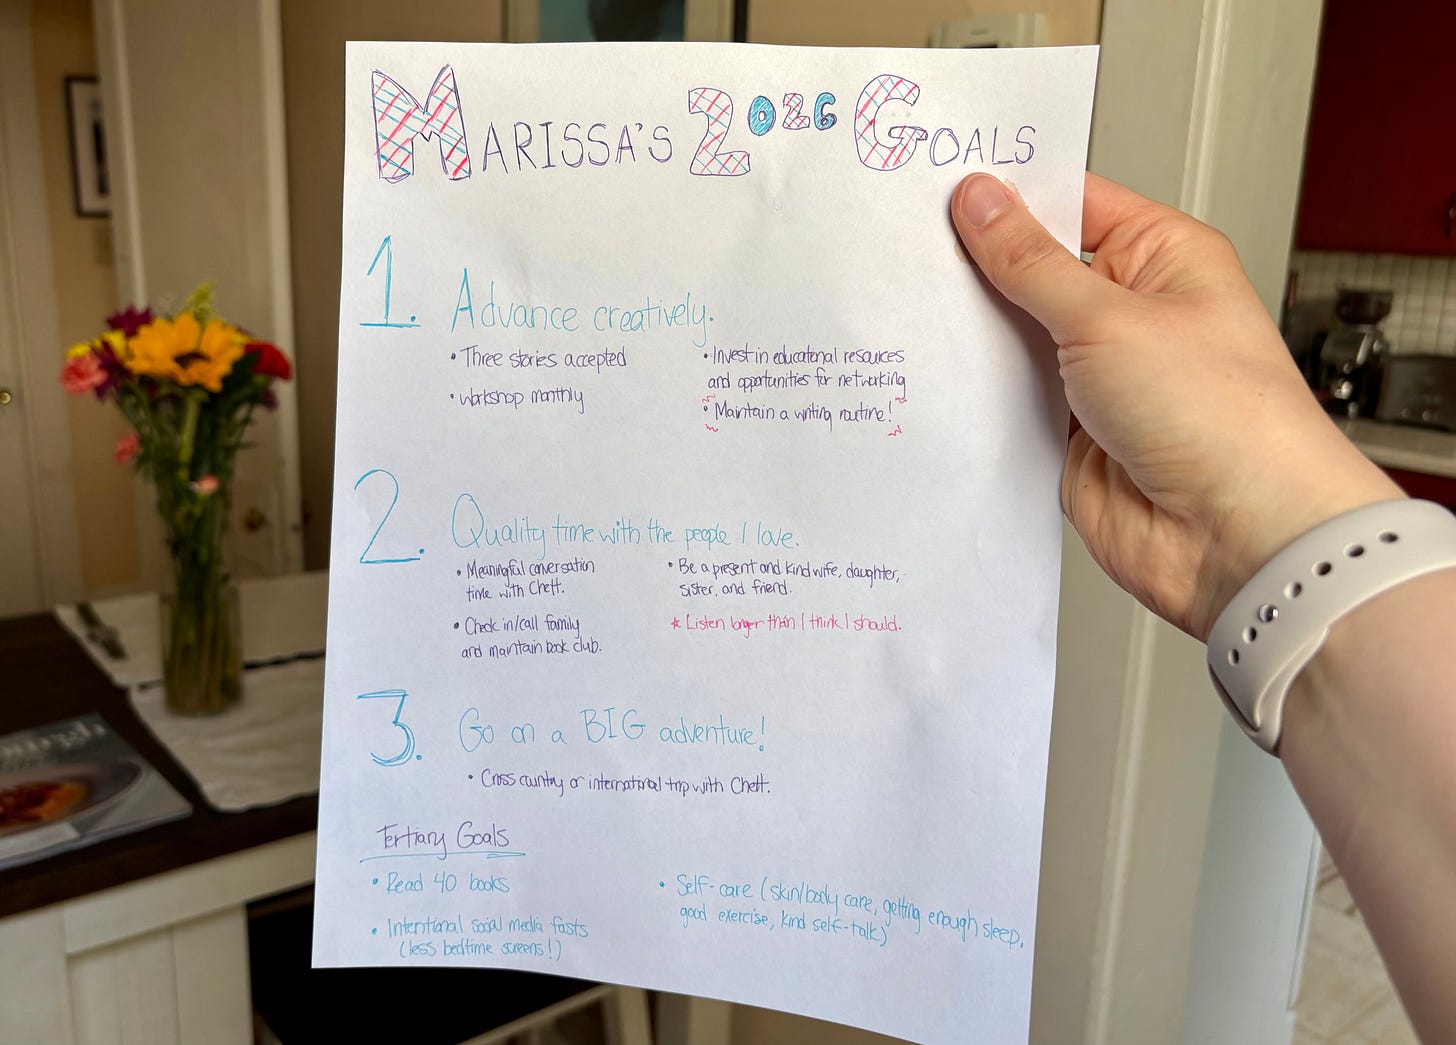 MARISSA'S 2026 GOALS
1. Advance creatively.
• Three stories accepted
• workshop monthly
• Invest in educational resources
and opportunities for networking
• Maintain a writing routine!
2. Quality time with the people I love.
• Meaningful conversation
time with Chett.
• Check in/call family
and maintain book club.
• Be a present and kind wife, daughter,
sister, and friend.
* Listen longer than I think I should.
3. Go on a BIG adventure!
• Cross country or international trip with Chett.
Tertiary Goals
• Read 40 books
• Intentional social media fasts
(less bedtime screens!)
• Self-care (skin/body care, getting enough sleep,
good exercise, kind self-talk)